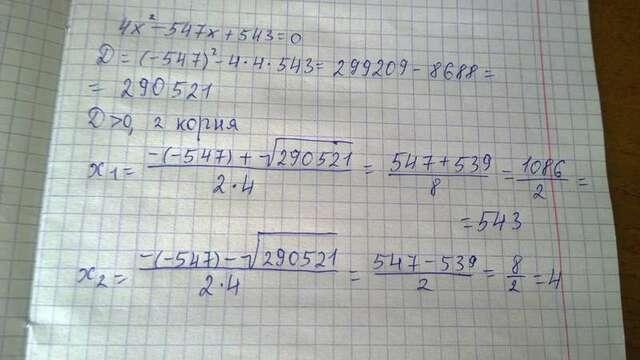 4x²-547x+543=0
D=(-547)²-4·4·543=299209-8688=
=290521
D>0, 2 корня
x₁= (-(-547)+√290521)/(2·4) = (547+539)/8 = 1086/2 =
=543
x₂= (-(-547)-√290521)/(2·4) = (547-539)/2 = 8/2 =4